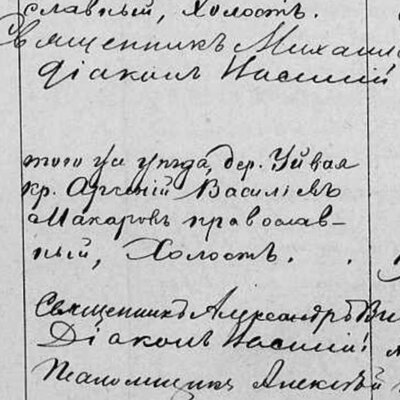 славный, холостъ.
Священникъ Михаил
Діаконъ Василій
того уѣзда, дер.
кр. Арсеній Василіевъ
Макаровъ православ-
ный, холостъ.
Священникъ Александръ
Діаконъ Василій
Псаломщикъ Алексѣй